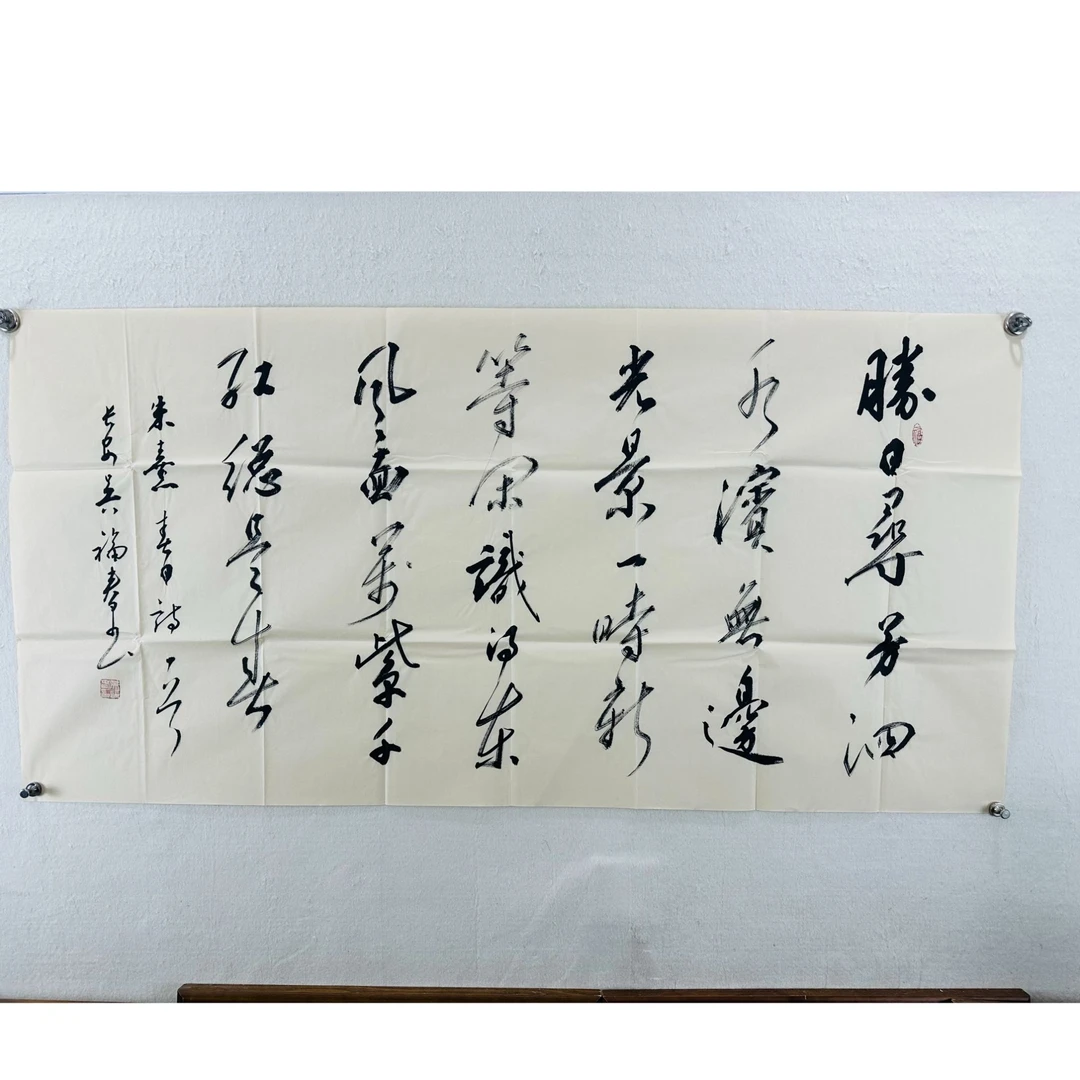 勝日尋芳泗
水濱無邊
光景一時新
等閑識得東
風面萬紫千
紅總是春
朱熹春日詩一首
長安吳福春書